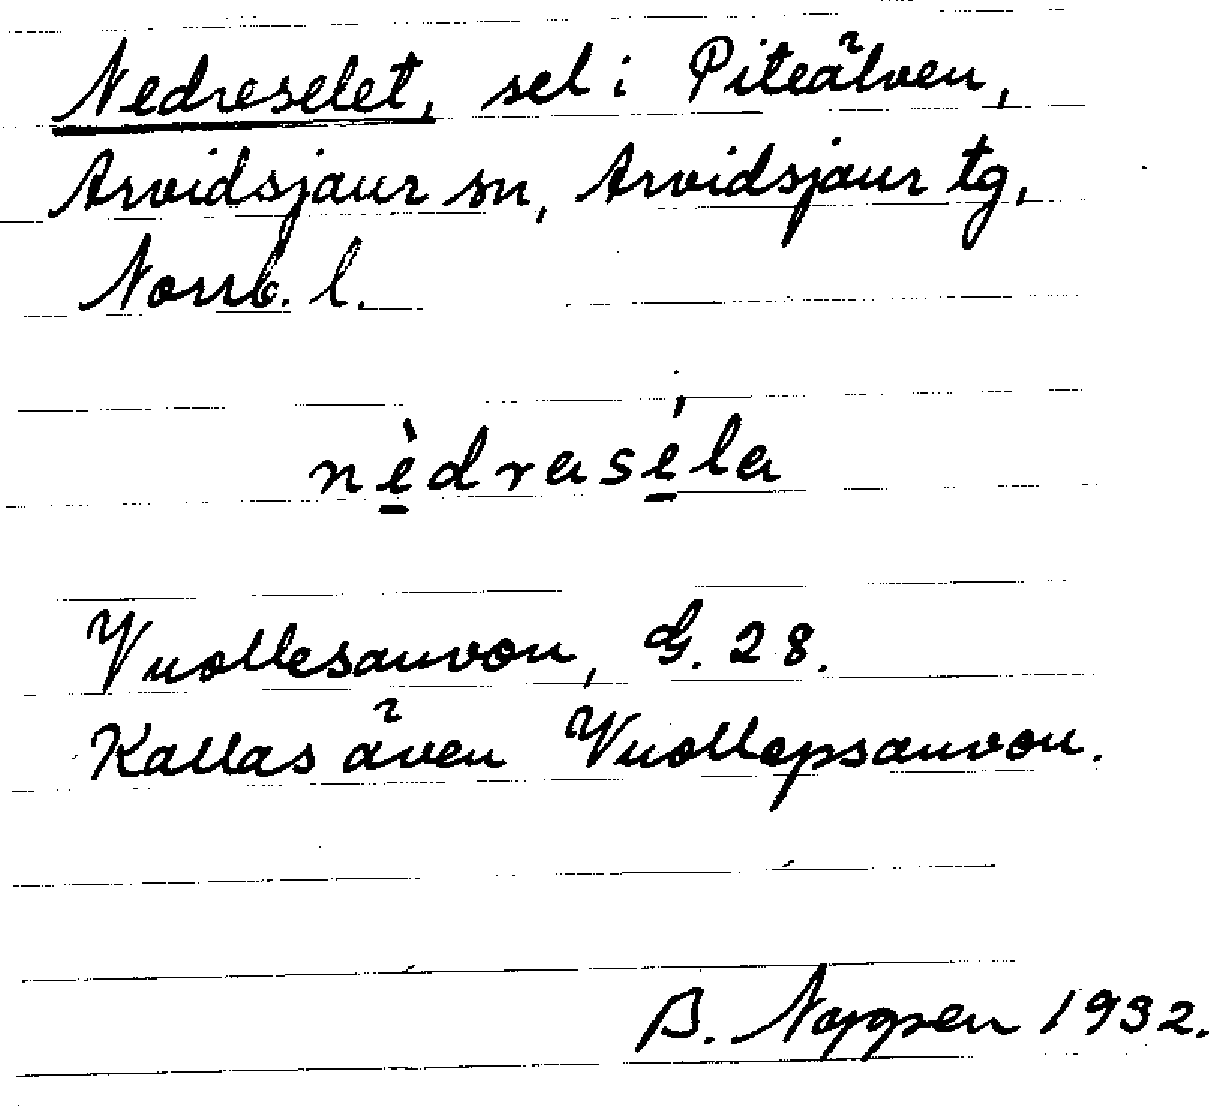 Nedreselet, sel i Piteälven,
Arvidsjaur sn, Arvidsjaur tg,
Norrb. l.
nèdraséla
Vuollesauvon, G. 28.
Kallas även Vuollepsauvon.
B. 1932.